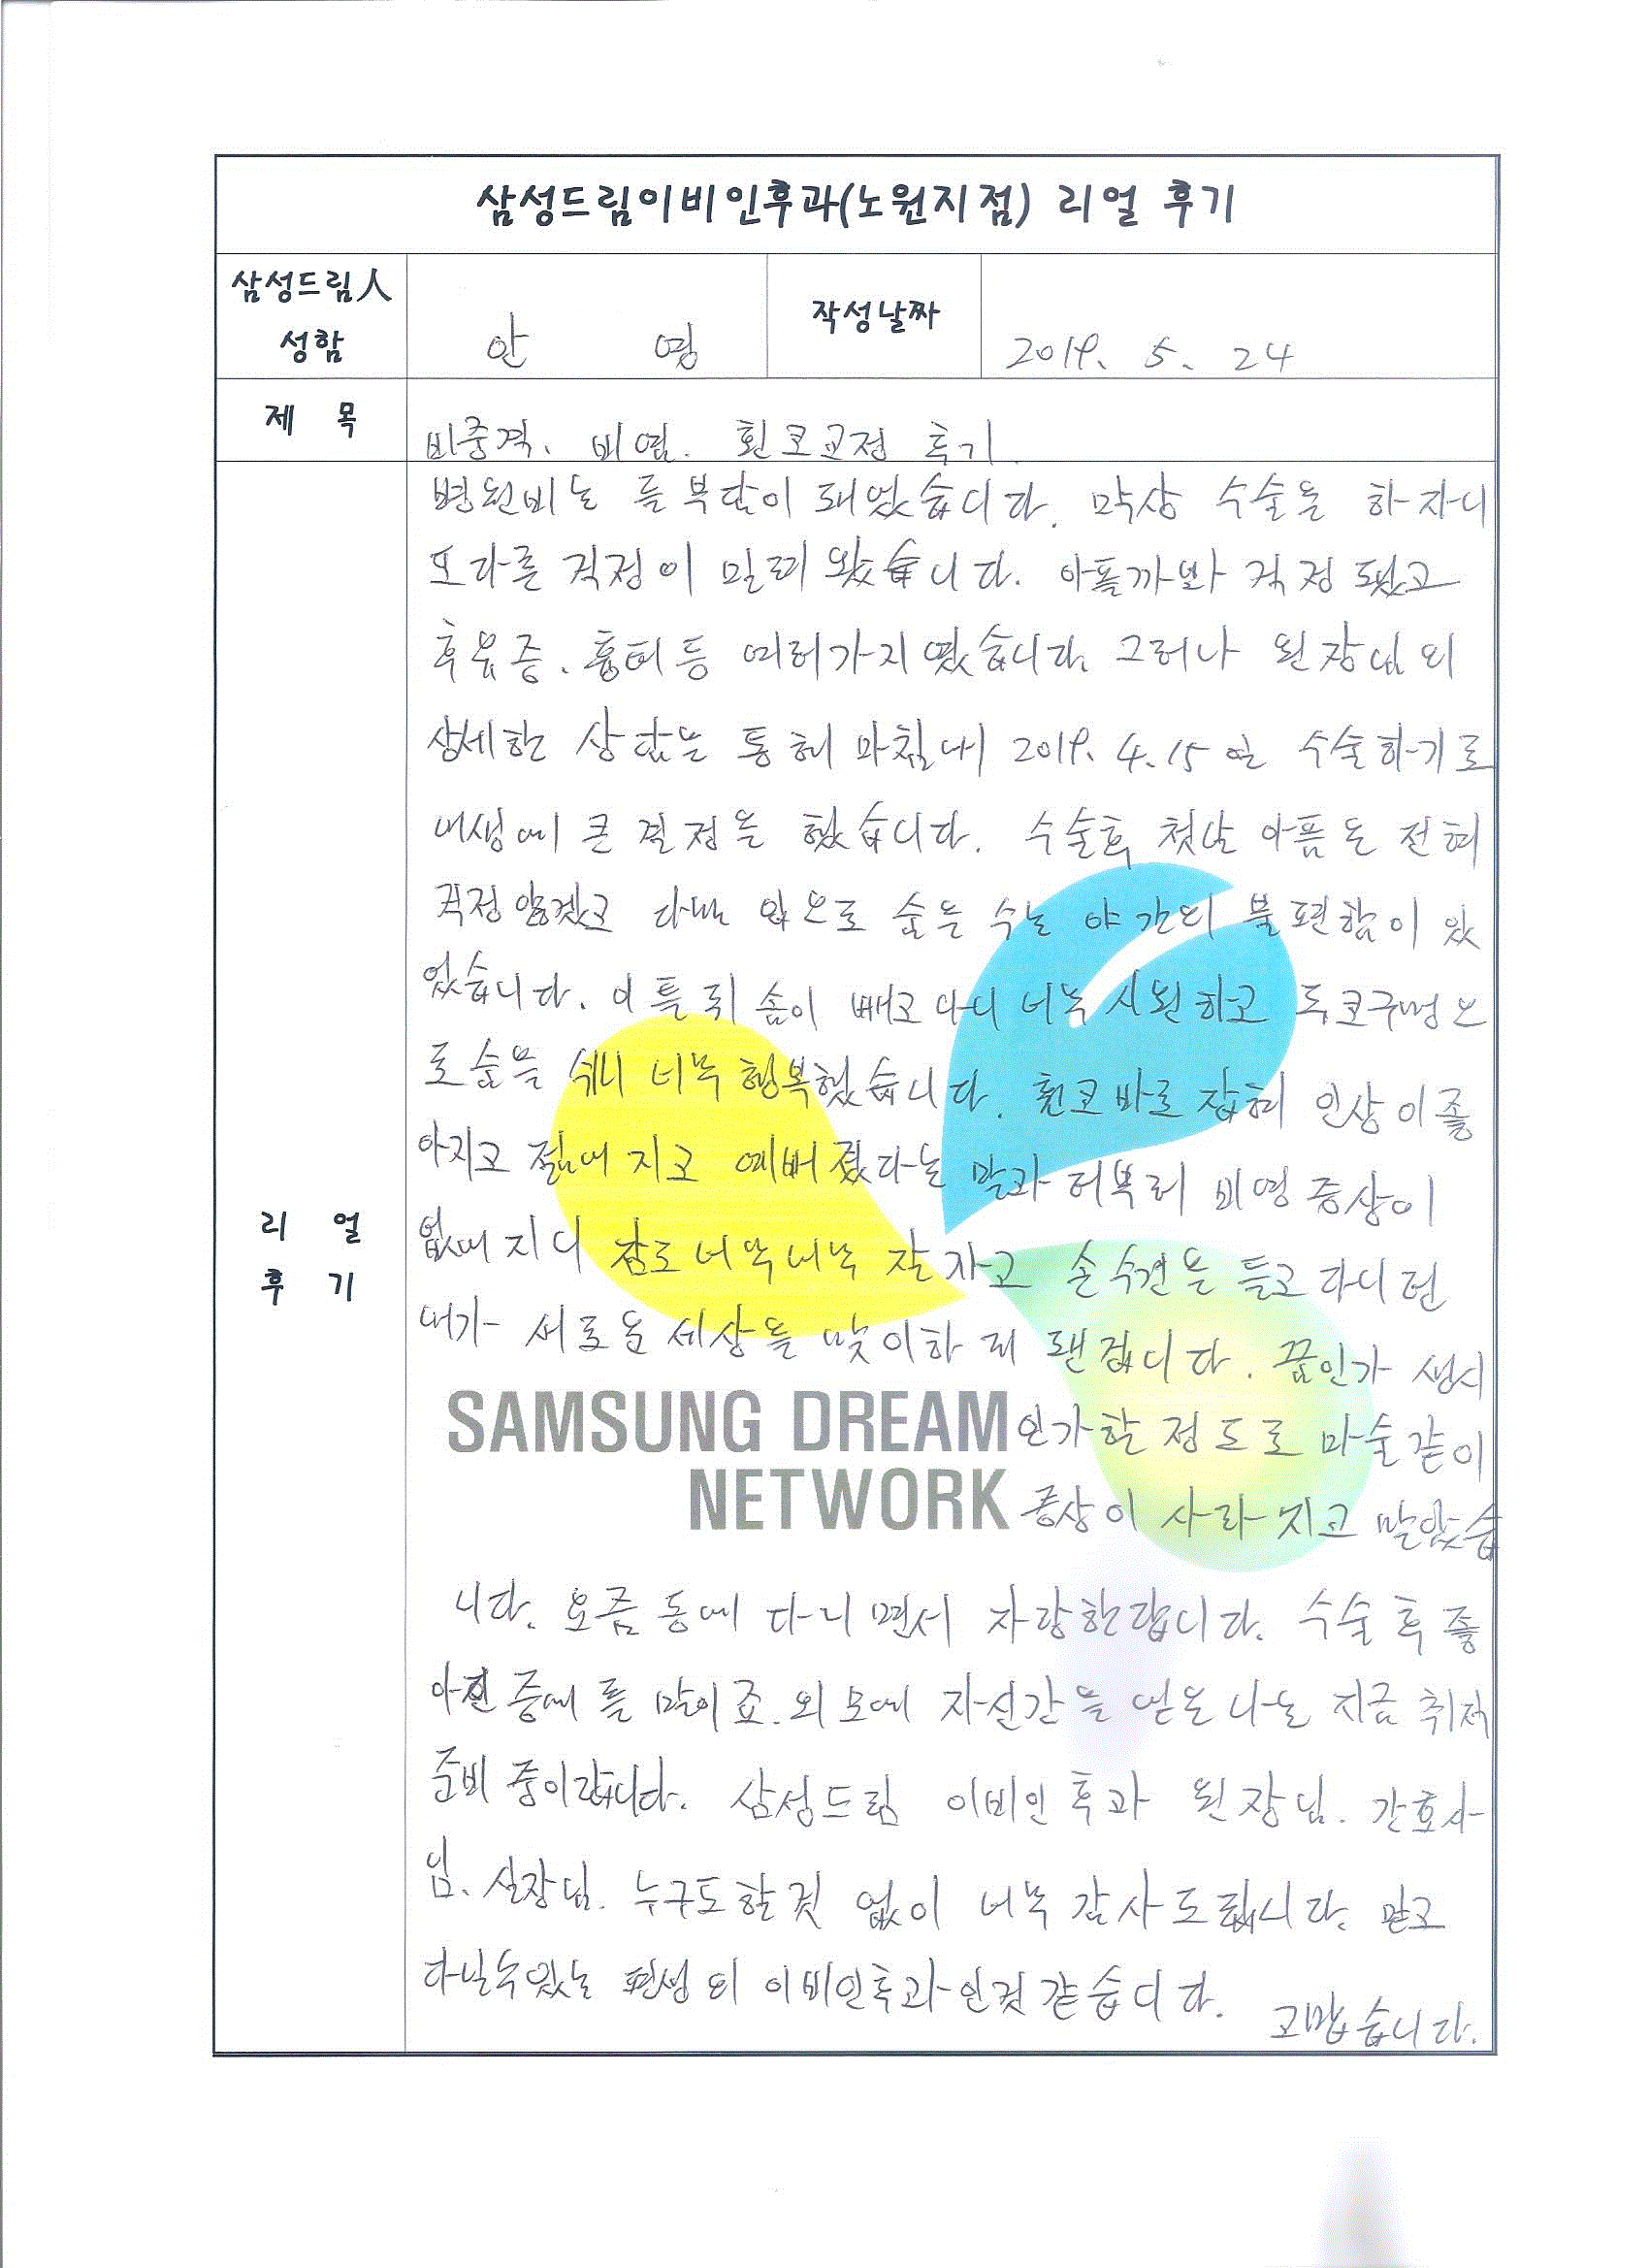 삼성드림이비인후과(노원지점) 리얼 후기
삼성드림人
성함
안 영
작성날짜
2019. 5. 24
제 목
비중격. 비염. 휜코교정 후기
병원비는 늘 부담이 돼었습니다. 막상 수술은 하자니
또다른 걱정이 밀려 왔습니다. 아플까봐 걱정 됐고
후유증. 흉터등 여러가지였습니다. 그러나 원장님의
상세한 상담을 통해 마침내 2019. 4. 15일 수술하기로
내생에 큰 결정을 했습니다. 수술후 첫날 아픔은 전혀
걱정않겠고 다만 입으로 숨은 수는 야간의 불편함이 있
었습니다. 이틀뒤 솜이 빼고 나니 너무 시원하고 두코구멍으
로 숨을 쉬니 너무 행복했습니다. 휜코바로 잡혀 인상이좋
아지고 젊어 지고 예뻐졌다는 말과 더불어 비염 증상이
없어 지니 잠도 너무너무 잘 자고 손수건을 들고 다니던
내가 새로운 세상을 맞이하게 됐겁니다. 꿈인가 생시
SAMSUNG DREAM
NETWORK
인가할 정도로 마술같이
증상이 사라지고 말았습
니다. 요즘 동네 다니면서 자랑한답니다. 수술 후 좋
아진 중에 틀 많이죠. 외모에 자신감을 얻은 나는 지금 취직
준비 중이랍니다. 삼성드림 이비인후과 원장님. 간호사
님. 실장님. 누구도할것 없이 너무 감사드립니다. 믿고
다닐수있는 평생의 이비인후과인것같습니다.
고맙습니다.